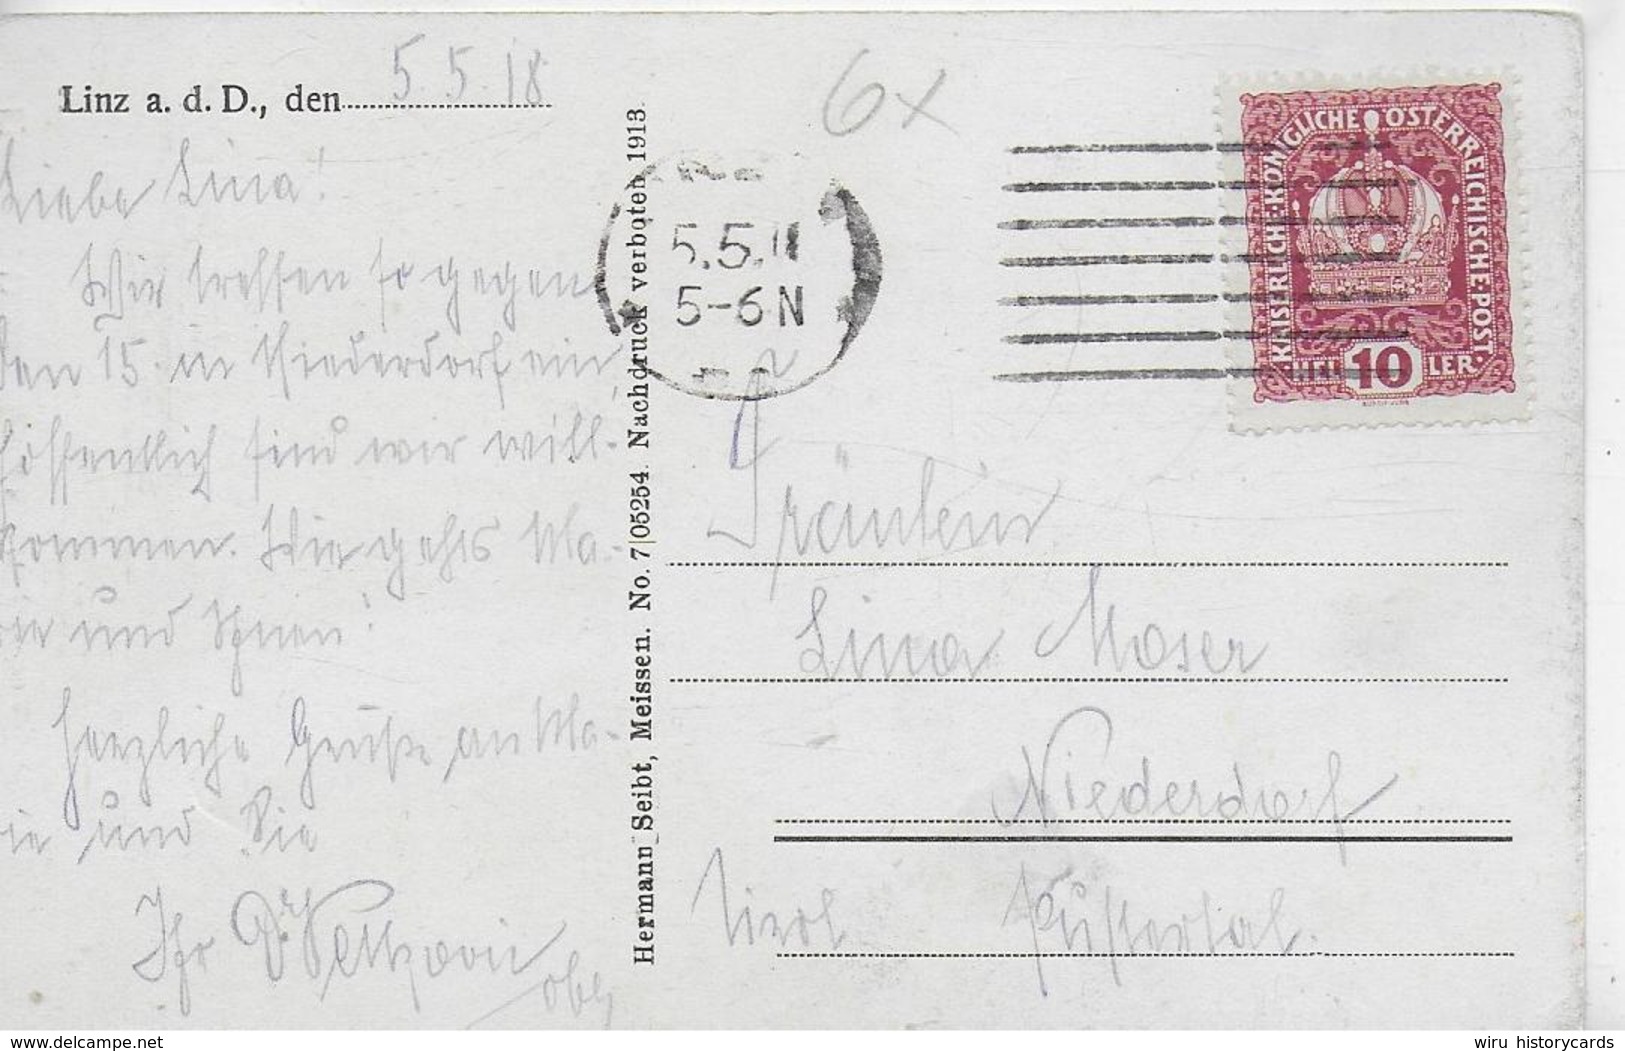 Linz a. d. D., den 5.5.18
Liebe Lina!
Wir treffen so gegen
den 15. in Niederdorf ein
hoffentlich sind wir will-
kommen. Wie gehts Ma-
rie und Ihnen!
Herzliche Grüße an Ma-
rie und Sie
Ihr Dr.
Hermann Seibt, Meissen. No. 7|05254. Nachdruck verboten 1913.
6x
5.5.
5-6N
KAISERLICHE·KÖNIGLICHE ÖSTERREICHISCHE·POST·
10 HELLER
Fräulein
Lina Moser
Niederdorf
Tirol Pustertal.
www.delcampe.net
wiru historycards